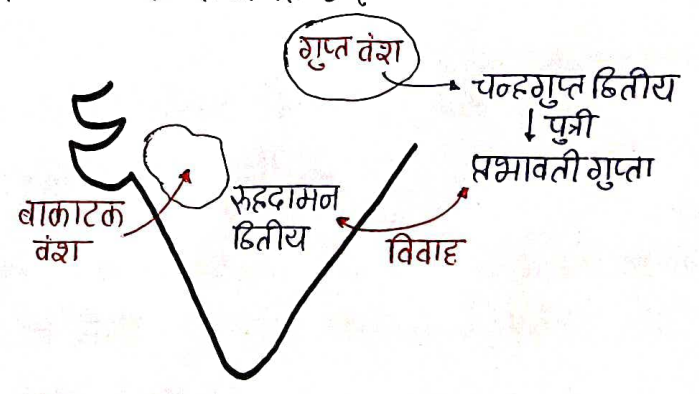 गुप्त वंश
चन्द्रगुप्त द्वितीय
पुत्री
प्रभावती गुप्ता
बाकाटक
वंश
रुद्रदामन
द्वितीय
विवाह